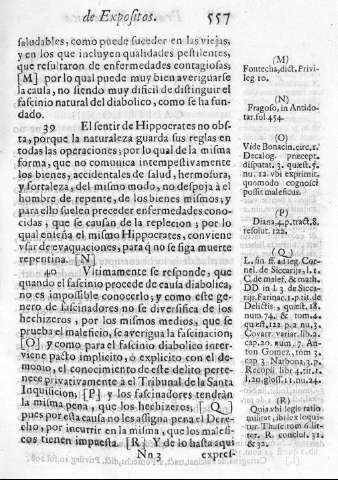 de Expositos.
557
saludables, como puede suceder en las viejas,
y en los que incluyen qualidades pestilentes,
que resultaron de enfermedades contagiosas,
[M] por lo qual puede muy bien averiguarse
la causa, no siendo muy dificil de distinguir el
fascinio natural del diabolico, como se ha fun-
dado.
39 El sentir de Hippocrates no obs-
ta, porque la naturaleza guarda sus reglas en
todas las operaciones; por lo qual de la misma
forma, que no comunica intempestivamente
los bienes, accidentales de salud, hermosura,
y fortaleza, del mismo modo, no despoja à el
hombre de repente, de los bienes mismos; y
para ello suelen preceder enfermedades cono-
cidas, que se causan de la replecion, por lo
qual enseña el mismo Hippocrates, conviene
usar de evaquaciones, para q̃ no se siga muerte
repentina. [N]
40 Vltimamente se responde, que
quando el fascinio procede de causa diabolica,
no es impossible conocerlo; y como este ge-
nero de fascinadores no se diversifica de los
hechizeros, por los mismos medios, que se
prueba el maleficio, se averigua la fascinacion;
[O] y como para el fascinio diabolico inter-
viene pacto implicito, ò explicito con el de-
monio, el conocimiento de este delito perte-
nece privativamente à el Tribunal de la Santa
Inquisicion; [P] y los fascinadores tendràn
la misma pena, que los hechizeros; [Q]
pues por esta causa no les assigna pena el Dere-
cho, por incurrir en la misma, que los malefi-
cos tienen impuesta. [R] Y de lo hasta aqui
Nn 3
expres-
(M)
Fontecha, dict. Privi-
leg 10.
(N)
Fragoso, in Antido-
tar. fol 454.
(O)
Vide Bonacin. circ. 1.
Decalog. præcept.
disputat. 3. quæst. 5.
nu. 12. vbi exprimit,
quomodo cognosci
possit maleficus.
(P)
Diana 4. p. tract. 8.
resolut. 122.
(Q)
L. fin ff. ad leg. Cor-
nel. de Siccarijs, l. 1.
C. de malef. & math.
DD in l 3 de Sicca-
rijs. Farinac. 1. p. tit de
Delictis, quæst. 18.
num 74. & tom. 4.
quæst. 122 p. 2. nu. 5.
Covarr. variar. lib. 2.
cap. 20. num. 7. An-
ton Gomez, tom 3.
cap 3. Narbona, 3. p.
Recopil lib 4. tit. 1.
l. 20. gloss. 11. nu. 24.
(R)
Quia vbi legis ratio
militat, ibi lex loqui-
tur. Thusc. tom 6 lit-
ter. R. conclus. 31.
& 32.